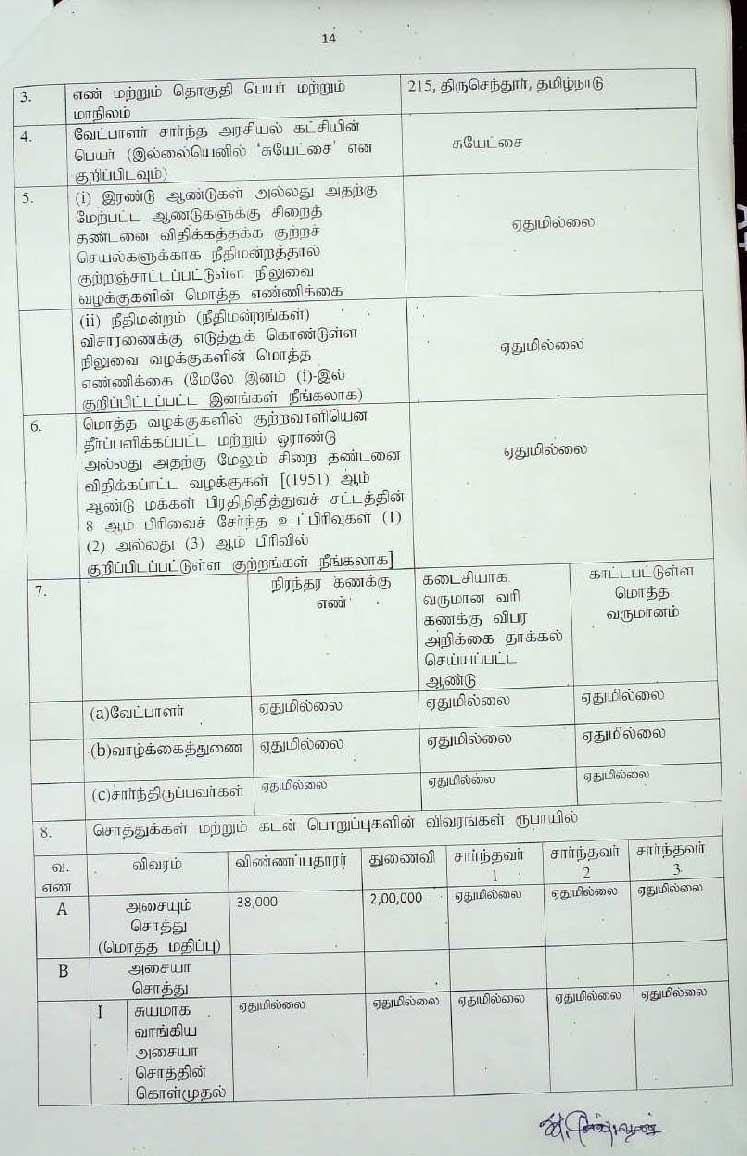 14
3. எண் மற்றும் தொகுதி பெயர் மற்றும் மாநிலம் 215, திருசெந்தூர், தமிழ்நாடு
4. வேட்பாளர் சார்ந்த அரசியல் கட்சியின்
பெயர் (இல்லையெனில் 'சுயேட்சை' என
குறிப்பிடவும்) சுயேட்சை
5. (i) இரண்டு ஆண்டுகள் அல்லது அதற்கு
மேற்பட்ட ஆண்டுகளுக்கு சிறைத்
தண்டனை விதிக்கத்தக்க குற்றச்
செயல்களுக்காக நீதிமன்றத்தால்
குற்றஞ்சாட்டப்பட்டுள்ள நிலுவை
வழக்குகளின் மொத்த எண்ணிக்கை ஏதுமில்லை
(ii) நீதிமன்றம் (நீதிமன்றங்கள்)
விசாரணைக்கு எடுத்துக் கொண்டுள்ள
நிலுவை வழக்குகளின் மொத்த
எண்ணிக்கை (மேலே இனம் (i)-இல்
குறிப்பிட்டப்பட்ட இனங்கள் நீங்கலாக) ஏதுமில்லை
6. மொத்த வழக்குகளில் குற்றவாளியென
தீர்ப்பளிக்கப்பட்ட மற்றும் ஓராண்டு
அல்லது அதற்கு மேலும் சிறை தண்டனை
விதிக்கப்பாட்ட வழக்குகள் [(1951) ஆம்
ஆண்டு மக்கள் பிரதிநிதித்துவச் சட்டத்தின்
8 ஆம் பிரிவைச் சேர்ந்த உட்பிரிவுகள் (1)
(2) அல்லது (3) ஆம் பிரிவில்
குறிப்பிடப்பட்டுள்ள குற்றங்கள் நீங்கலாக] ஏதுமில்லை
7. நிரந்தர கணக்கு
எண்
கடைசியாக
வருமான வரி
கணக்கு விபர
அறிக்கை தாக்கல்
செய்யப்பட்ட
ஆண்டு
காட்டபட்டுள்ள
மொத்த
வருமானம்
(a)வேட்பாளர் ஏதுமில்லை ஏதுமில்லை ஏதுமில்லை
(b)வாழ்க்கைத்துணை ஏதுமில்லை ஏதுமில்லை ஏதுமில்லை
(c)சார்ந்திடுப்பவர்கள் ஏதுமில்லை ஏதுமில்லை ஏதுமில்லை
8. சொத்துக்கள் மற்றும் கடன் பொறுப்புகளின் விவரங்கள் ரூபாயில்
வ.
எண்
விவரம் விண்ணப்பதாரர் துணைவி சார்ந்தவர்
1
சார்ந்தவர்
2
சார்ந்தவர்
3
A அசையும்
சொத்து
(மொத்த மதிப்பு) 38,000 2,00,000 ஏதுமில்லை ஏதுமில்லை ஏதுமில்லை
B அசையா
சொத்து
I சுயமாக
வாங்கிய
அசையா
சொத்தின்
கொள்முதல் ஏதுமில்லை ஏதுமில்லை ஏதுமில்லை ஏதுமில்லை ஏதுமில்லை